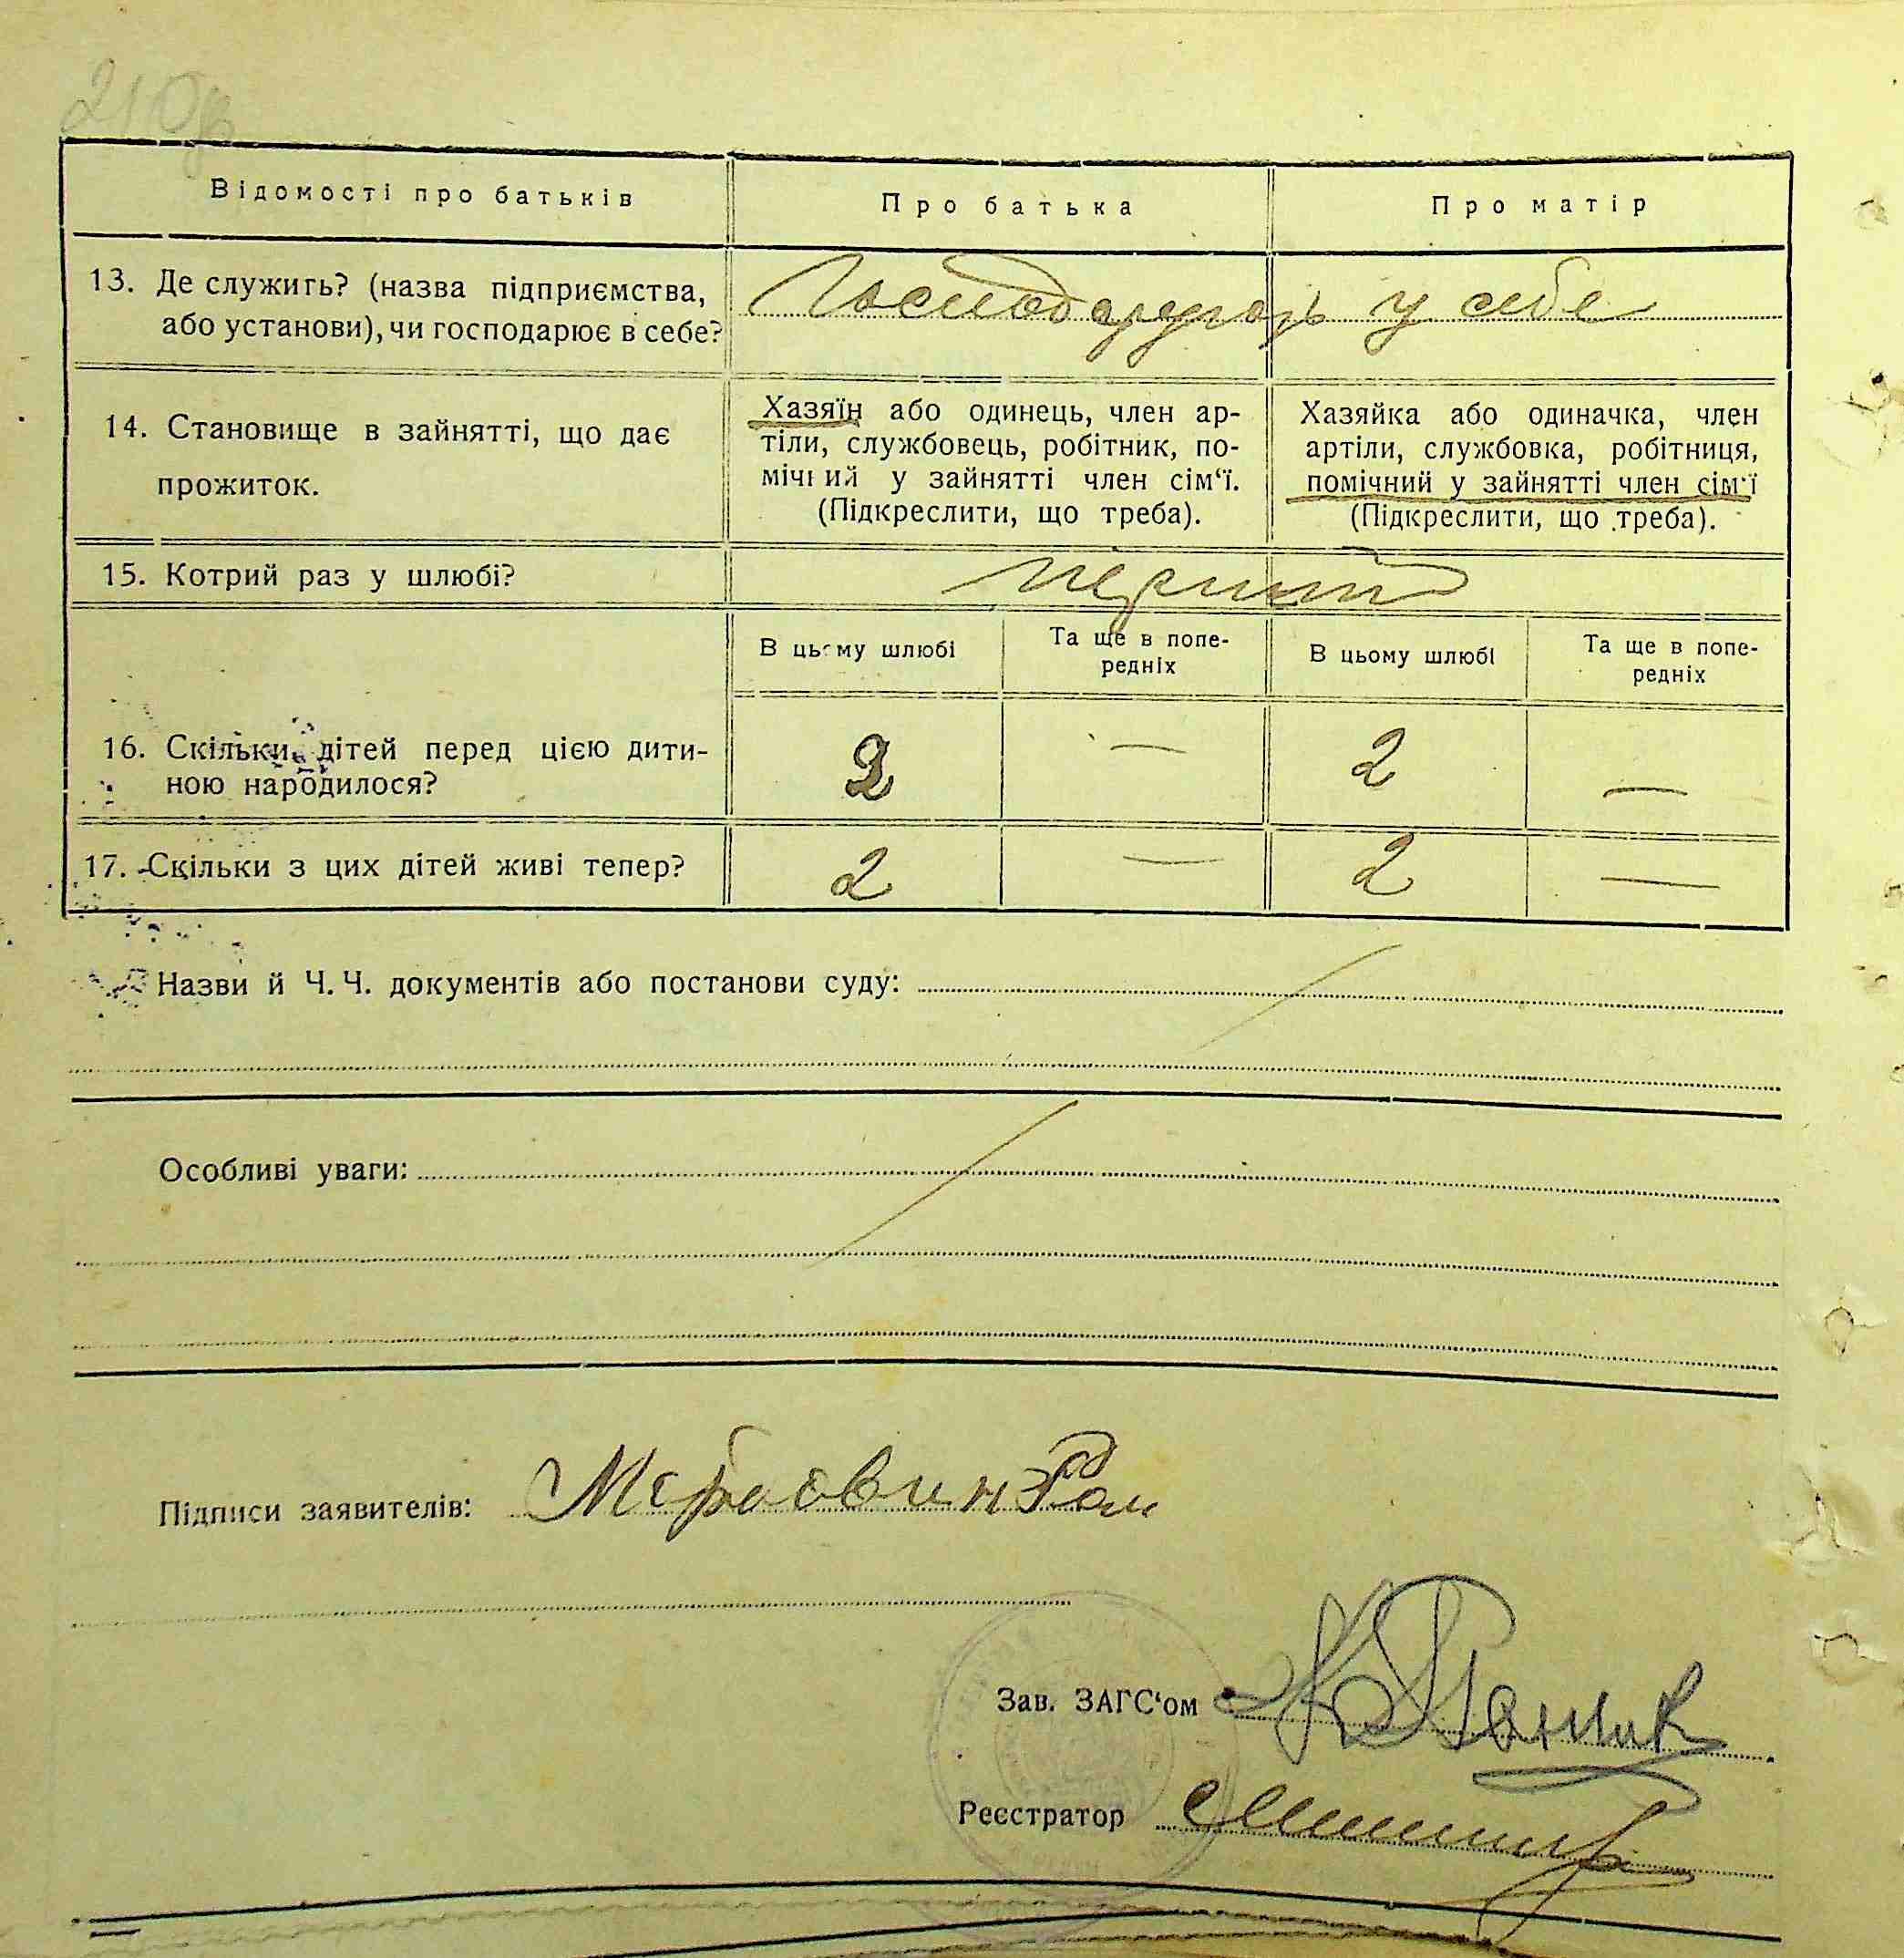 Відомості про батьків
Про батька
Про матір
13. Де служить? (назва підприємства,
або установи), чи господарює в себе?
Господарують у себе
14. Становище в зайнятті, що дає
прожиток.
Хазяїн або одинець, член ар-
тіли, службовець, робітник, по-
мічний у зайнятті член сім‘ї.
(Підкреслити, що треба).
Хазяйка або одиначка, член
артіли, службовка, робітниця,
помічний у зайнятті член сім‘ї
(Підкреслити, що треба).
15. Котрий раз у шлюбі?
перший
В цьому шлюбі
Та ще в попе-
редніх
В цьому шлюбі
Та ще в попе-
редніх
16. Скільки дітей перед цією дити-
ною народилося?
2 — 2 —
17. Скільки з цих дітей живі тепер?
2 — 2 —
Назви й Ч. Ч. документів або постанови суду:
Особливі уваги:
Підписи заявителів:
Зав. ЗАГС‘ом
Реєстратор